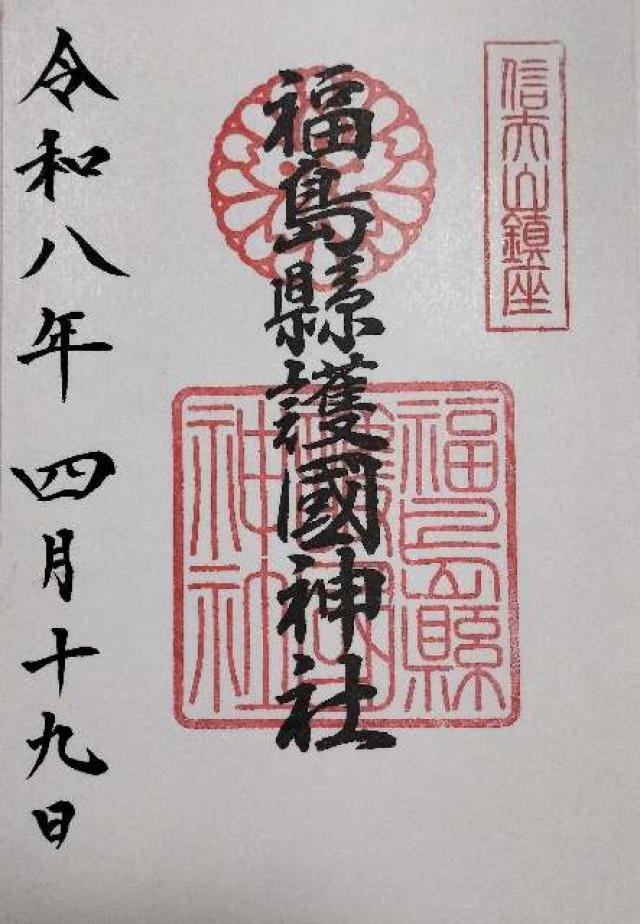 信夫山鎮座
福島縣護國神社
福島縣
護國
神社
令和八年四月十九日